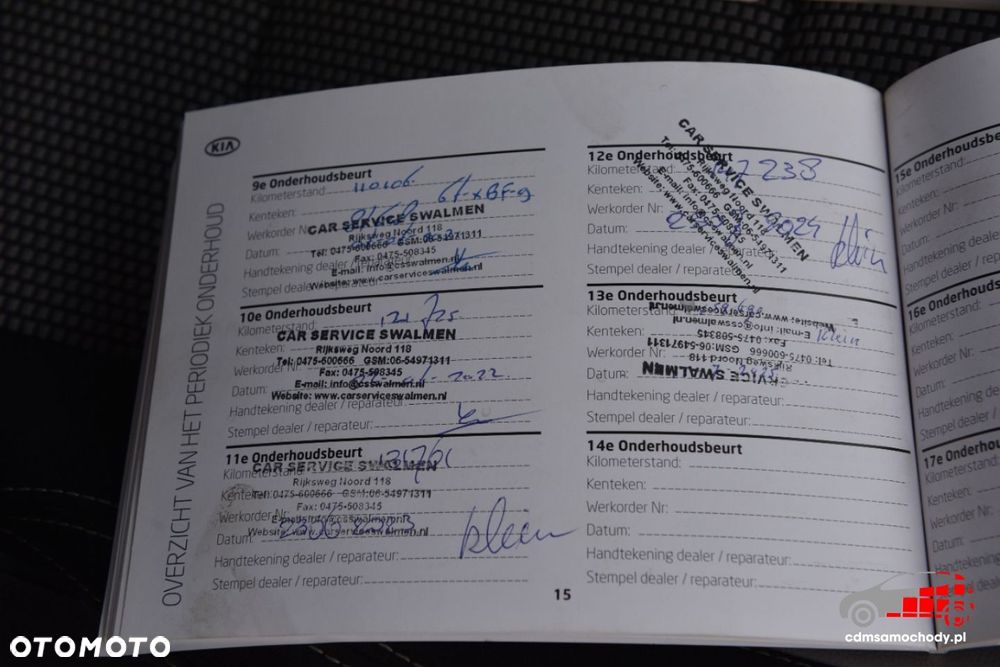 KIA
OVERZICHT VAN HET PERIODIEK ONDERHOUD
9e Onderhoudsbeurt
Kilometerstand: 110106
Kenteken: 61-XBF-9
Werkorder Nr:
Datum:
Handtekening dealer / reparateur:
Stempel dealer / reparateur:
CAR SERVICE SWALMEN
Rijksweg Noord 118
Tel: 0475-600666 GSM:06-54971311
Fax: 0475-508345
E-mail: info@csswalmen.nl
Website: www.carserviceswalmen.nl
10e Onderhoudsbeurt
Kilometerstand:
Kenteken:
Werkorder Nr:
Datum: 2022
Handtekening dealer / reparateur:
Stempel dealer / reparateur:
CAR SERVICE SWALMEN
Rijksweg Noord 118
Tel: 0475-600666 GSM:06-54971311
Fax: 0475-508345
E-mail: info@csswalmen.nl
Website: www.carserviceswalmen.nl
11e Onderhoudsbeurt
Kilometerstand:
Kenteken:
Werkorder Nr:
Datum:
Handtekening dealer / reparateur:
Stempel dealer / reparateur:
CAR SERVICE SWALMEN
Rijksweg Noord 118
Tel: 0475-600666 GSM:06-54971311
Fax: 0475-508345
E-mail: info@csswalmen.nl
Website: www.carserviceswalmen.nl
klein
12e Onderhoudsbeurt
Kilometerstand:
Kenteken:
Werkorder Nr:
Datum: 2024
Handtekening dealer / reparateur:
Stempel dealer / reparateur:
CAR SERVICE SWALMEN
Rijksweg Noord 118
Tel: 0475-600666 GSM:06-54971311
Fax: 0475-508345
E-mail: info@csswalmen.nl
Website: www.carserviceswalmen.nl
klein
13e Onderhoudsbeurt
Kilometerstand:
Kenteken:
Werkorder Nr:
Datum:
Handtekening dealer / reparateur:
Stempel dealer / reparateur:
RVICE SWALMEN
Rijksweg Noord 118
Tel: 0475-600666 GSM:06-54971311
Fax: 0475-508345
E-mail: info@csswalmen.nl
Website: www.carserviceswalmen.nl
klein
14e Onderhoudsbeurt
Kilometerstand:
Kenteken:
Werkorder Nr:
Datum:
Handtekening dealer / reparateur:
Stempel dealer / reparateur:
15
15e Onderhoudsb
Kilometerstand:
Kenteken:
Werkorder Nr:
Datum:
Handtekening deal
Stempel dealer / rep
16e Onderhoudsb
Kilometerstand:
Kenteken:
Werkorder Nr:
Datum:
Handtekening deal
Stempel dealer / rep
17e Onderhou
Kilometerstand
Kenteken:
Werkorder Nr:
Datum:
Handtekening
Stempel dealer
OTOMOTO
cdmsamochody.pl